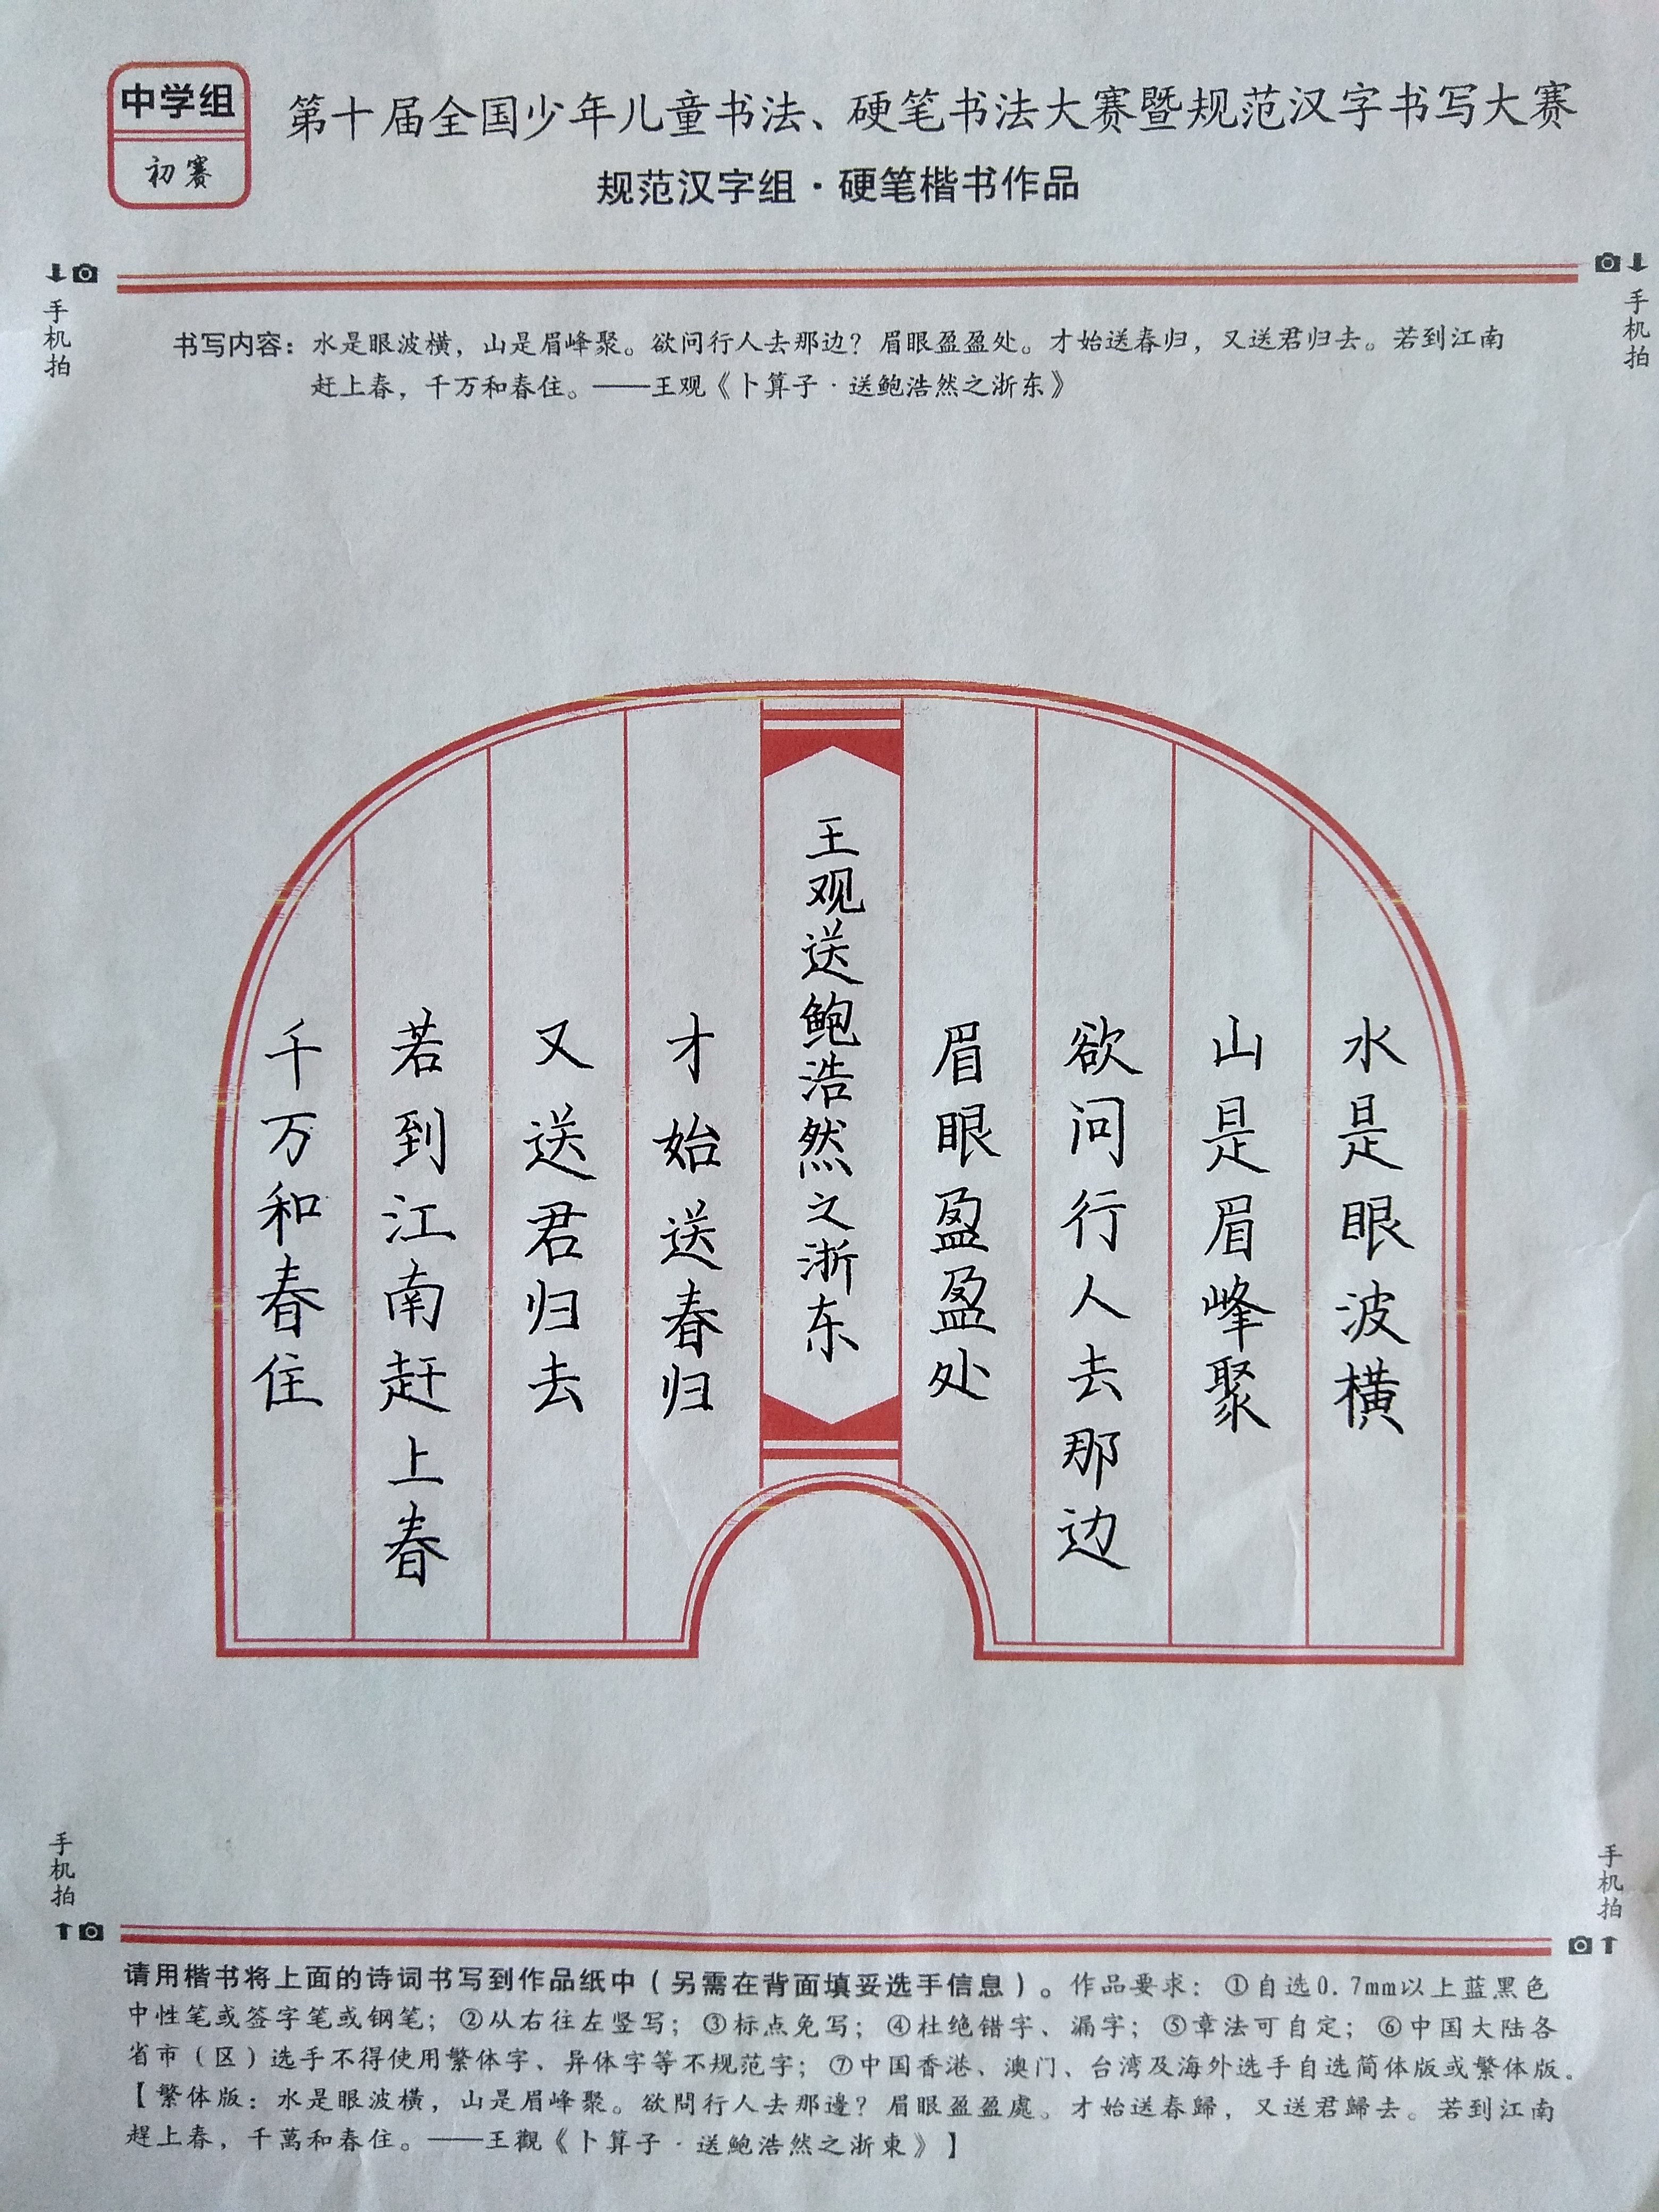 中学组
初赛
第十届全国少年儿童书法、硬笔书法大赛暨规范汉字书写大赛
规范汉字组·硬笔楷书作品
手机拍
手机拍
书写内容：水是眼波横，山是眉峰聚。欲问行人去那边？眉眼盈盈处。才始送春归，又送君归去。若到江南
赶上春，千万和春住。——王观《卜算子·送鲍浩然之浙东》
水是眼波横
山是眉峰聚
欲问行人去那边
眉眼盈盈处
王观送鲍浩然之浙东
才始送春归
又送君归去
若到江南赶上春
千万和春住
手机拍
手机拍
请用楷书将上面的诗词书写到作品纸中（另需在背面填妥选手信息）。作品要求：①自选0.7mm以上蓝黑色
中性笔或签字笔或钢笔；②从右往左竖写；③标点免写；④杜绝错字、漏字；⑤章法可自定；⑥中国大陆各
省市（区）选手不得使用繁体字、异体字等不规范字；⑦中国香港、澳门、台湾及海外选手自选简体版或繁体版。
【繁体版：水是眼波橫，山是眉峰聚。欲問行人去那邊？眉眼盈盈處。才始送春歸，又送君歸去。若到江南
趕上春，千萬和春住。——王觀《卜算子·送鮑浩然之浙東》】